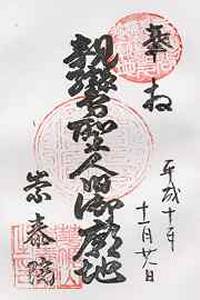 奉拝
平成十年
十一月廿日
親鸞聖人旧御廟地
崇泰院